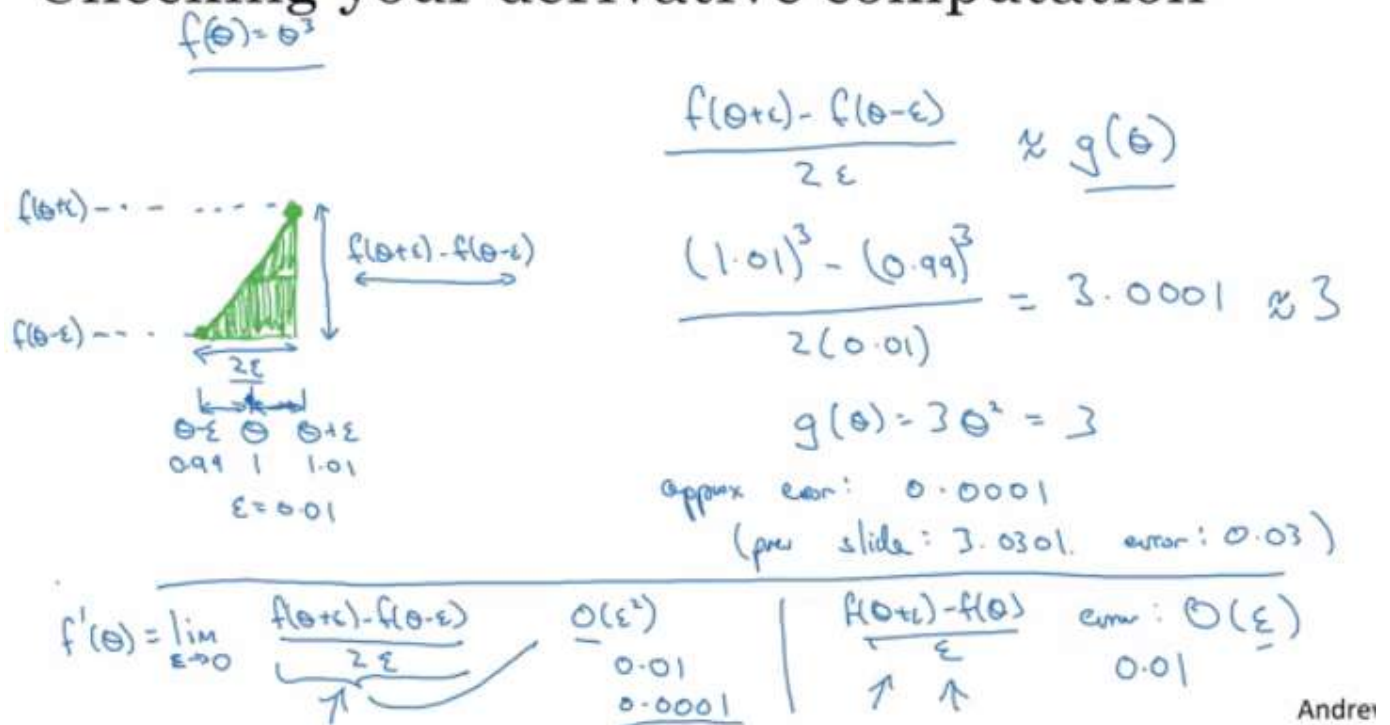 Checking your derivative computation
f(θ) = θ³
f(θ+ε) - f(θ-ε) / 2ε ≈ g(θ)
f(θ+ε)
f(θ+ε) - f(θ-ε)
(1.01)³ - (0.99)³ / 2(0.01) = 3.0001 ≈ 3
f(θ-ε)
2ε
θ-ε θ θ+ε
0.99 1 1.01
ε = 0.01
g(θ) = 3θ² = 3
approx error: 0.0001
(prev slide: 3.0301. error: 0.03)
f'(θ) = lim ε→0 f(θ+ε) - f(θ-ε) / 2ε O(ε²)
0.01
0.0001
f(θ+ε) - f(θ) / ε error: O(ε)
0.01
Andrew